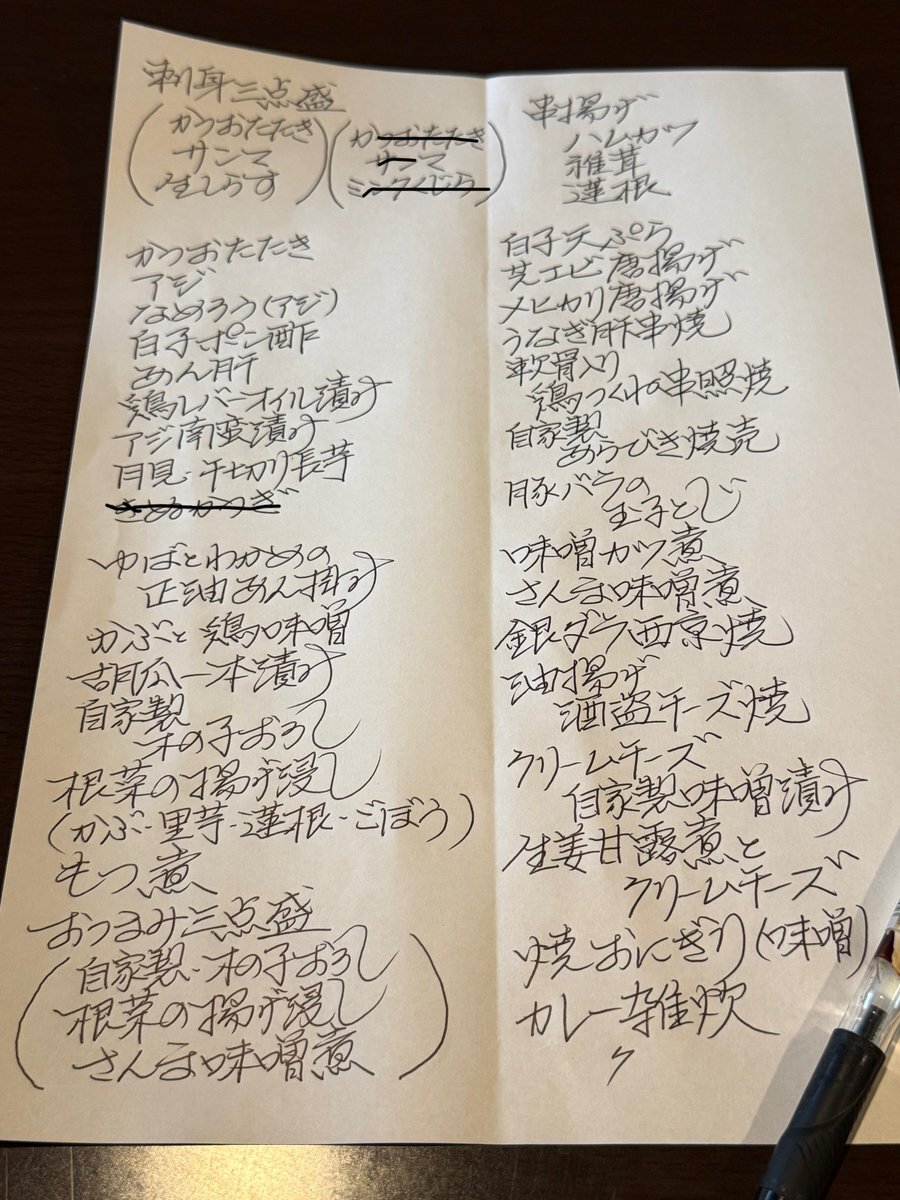 刺身三点盛
(かつおたたき
サンマ
生しらす)
(かつおたたき
サンマ
ミンクくじら)
かつおたたき
アジ
なめろう(アジ)
白子ポン酢
あん肝
鶏レバーオイル漬け
アジ南蛮漬け
月見・千切り長芋
ゆばとわかめの
正油あん掛け
かぶと鶏味噌
胡瓜一本漬け
自家製
木の子おろし
根菜の揚げ浸し
(かぶ・里芋・蓮根・ごぼう)
もつ煮
おつまみ三点盛
(自家製・木の子おろし
根菜の揚げ浸し
さんま味噌煮)
串揚げ
ハムカツ
椎茸
蓮根
白子天ぷら
芝エビ唐揚げ
メヒカリ唐揚げ
うなぎ肝串焼
軟骨入り
鶏つくねの串照焼
自家製
あらびき焼売
豚バラの
玉子とじ
味噌カツ煮
さんま味噌煮
銀ダラ西京焼
油揚げ
酒盗チーズ焼
クリームチーズ
自家製味噌漬け
生姜甘露煮と
クリームチーズ
焼おにぎり(味噌)
カレー雑炊